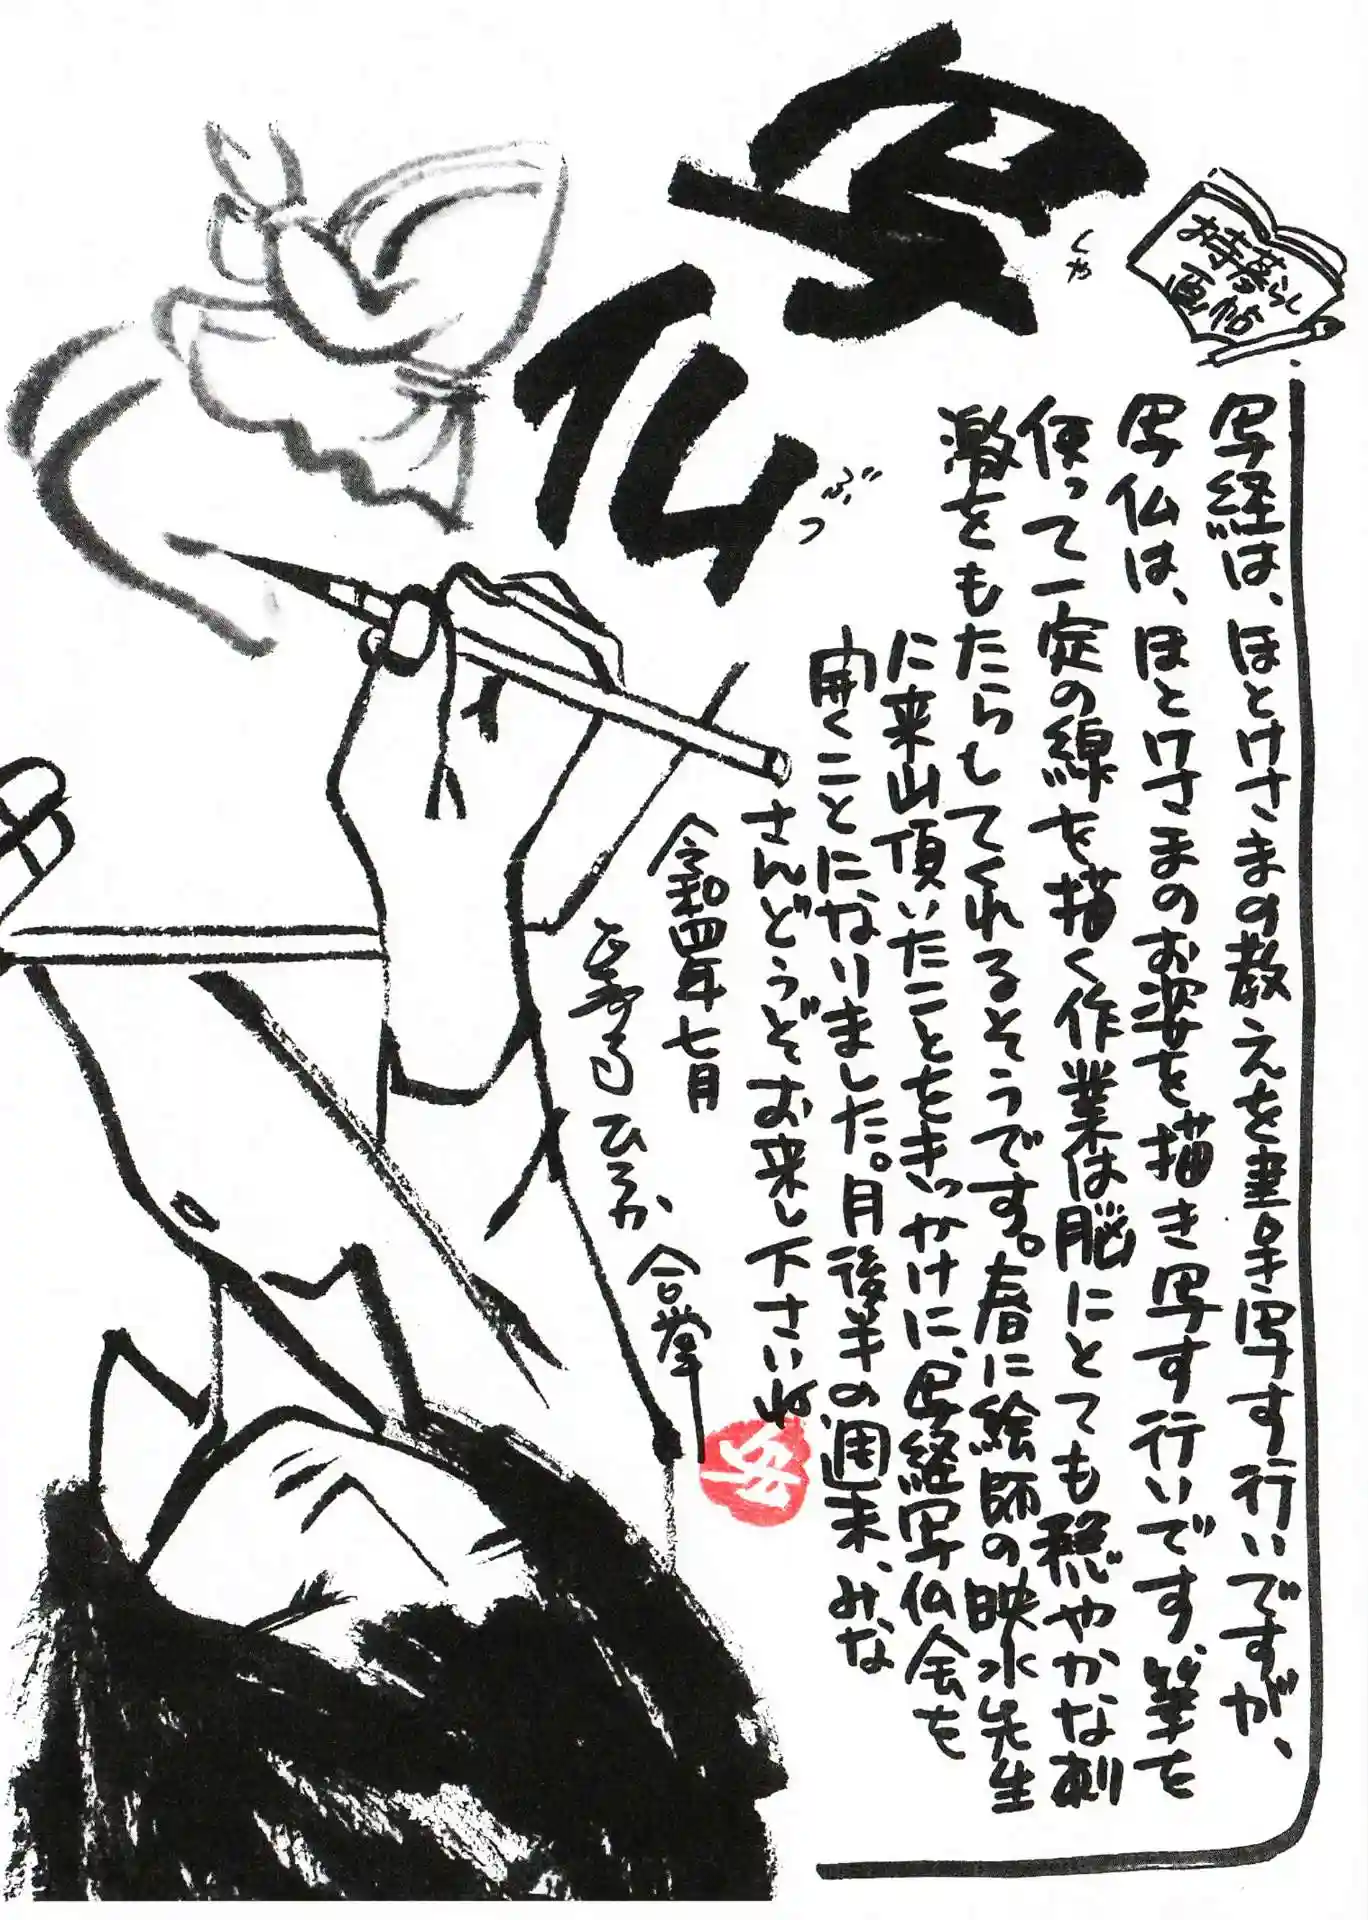 持暮らし
画帖
写
しゃ
仏
ぶつ
写経は、ほとけさまの教えを書き写す行いですが、
写仏は、ほとけさまのお姿を描き写す行いです。筆を
使って一定の線を描く作業は脳にとても穏やかな刺
激をもたらしてくれるそうです。春に絵師の映水先生
に来山頂いたことをきっかけに、写経写仏会を
開くことになりました。月後半の週末、みな
さんどうぞお来し下さいね
令和四年七月
合掌